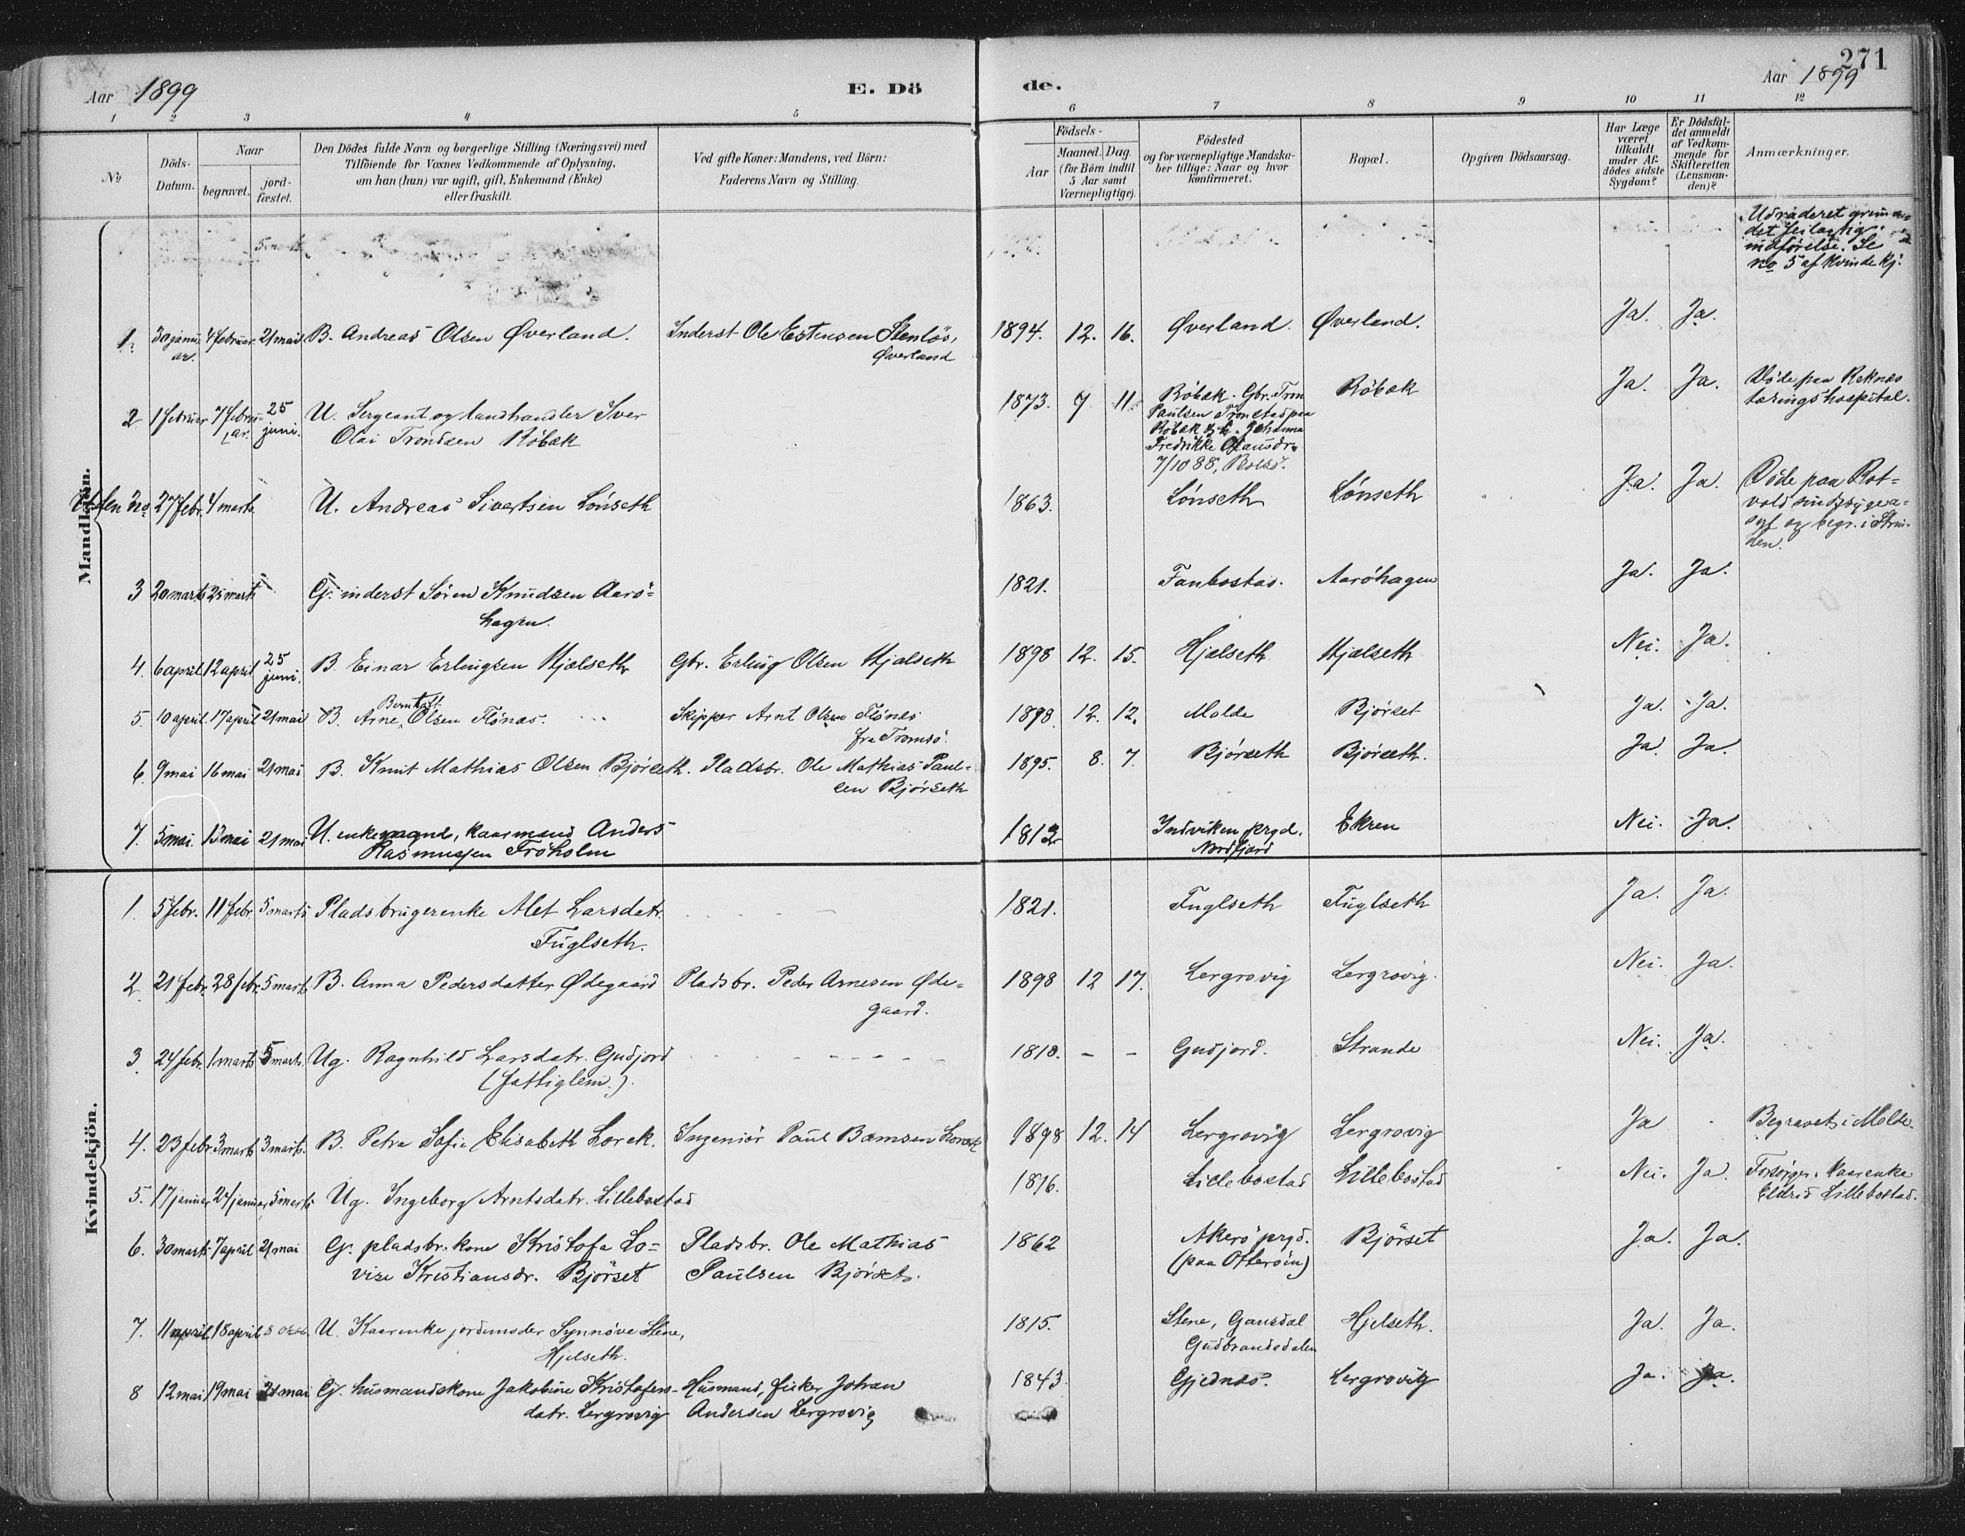 271
Aar 1899 E. Dö de. Aar 1899
1 2 3 4 5 6 7 8 9 10 11 12
No
Döds-Datum.
Naar
begravet.
jord-fæstet.
Den Dödes fulde Navn og borgerlige Stilling (Næringsvei) med
Tilföiende for Voxnes Vedkommende af Oplysning,
om han (hun) var ugift, gift, Enkemand (Enke)
eller fraskilt.
Ved gifte Koner: Mandens, ved Börn:
Faderens Navn og Stilling.
Födsels-
Aar Maaned. Dag.
(for Börn indtil
5 Aar samt
Værnepligtige).
Födested
og for værnepligtige Mandska-
ber tillige: Naar og hvor
konfirmeret.
Bopæl.
Opgiven Dödsaarsag.
Har Læge
været
tilkaldt
under Af-
dödes sidste
Sygdom?
Er Dödsfal-
det anmeldt
af Vedkom-
mende for
Skifteretten
(Lensman-
den)?
Anmærkninger.
Mandkjön.
Udraderet grun
det feilagtig
indførelse. Se
no 5 af Kvindekj.
1. 30 januar. 4 februar. 21 mai B. Andreas Olsen Øverland. Inderst Ole Estensen Stenløs, Øverland 1894. 12. 16. Øverland. Øverland. Ja. Ja.
2 1 februar 7 februar. 25 juni. U. Sergeant og landhandler Iver
Olai Trondsen Røbæk 1873. 7 11. Røbæk. Gbr. Tron
Paulsen Tronstad paa
Røbæk & h. Johanna
Fredrikke Olausdr.
7/10 88, Bolsø. Røbæk Ja. Ja. Døde paa Reknæs
tæringshospital.
Uden no 27 febr. 4 marts U. Andreas Sivertsen Lønseth 1863. Lønseth Lønseth Ja. Ja. Døde paa Rot-
vold sindssygea-
syl og begr. i Strin-
den.
3 20 marts 25 marts G. inderst Søren Knudsen Aarö-
hagen. 1821. Fanbostad. Aaröhagen Ja. Ja.
4. 6 april. 12 april 25 juni. B. Einar Erlingsen Hjelseth Gbr. Erling Olsen Hjelseth 1898 12. 15. Hjelseth Hjelseth Nei. Ja.
5. 10 april 17 april 21 mai B. Arne Berntoft Olsen Flönæs. Skipper Arnt Olsen Flönes
fra Tromsö. 1898. 12. 12. Molde Bjørset Ja. Ja.
6. 9 mai 16 mai 21 mai B. Knut Mathias Olsen Bjørseth. Pladsbr. Ole Mathias Paul-
sen Bjørseth 1895. 8. 7. Bjørseth Bjørseth. Ja. Ja.
7. 5 mai. 13 mai 21 mai U. enkemand, kaarmand Anders
Rasmussen Frøholm 1812 Indviken prgd.
Nordfjord Ekren Nei. Ja.
Kvindekjön.
1. 5 febr. 11 febr. 5 marts Pladsbrugerenke Alet Larsdatr.
Fuglseth. 1821. Fuglseth Fuglseth Ja. Ja.
2. 21 febr. 28 febr. 5 marts B. Anna Pedersdatter Ødegaard Pladsbr. Peder Arnesen Øde-
gaard. 1898 12 17. Lergrovig Lergrovig. Nei. Ja.
3. 24 febr. 1 marts 5 marts. Ug. Ragnhild Larsdatr. Gudjord
(fattiglem.). 1810. - - Gudjord. Strande Nei. Ja.
4. 23 febr. 3 marts 3 marts. B. Petra Sofie Elisabeth Lorck. Ingeniör Paul Bamsen Lorck 1898 12. 14 Lergrovig Lergrovig Ja Begravet i Molde.
5. 17 januar 24 januar 5 marts Ug. Ingeborg Arntsdatr. Lillebostad 1816. Lillebostad Lillebostad Nei. Ja. Forsørger. Kaarenke
Eldrid Lillebostad.
6. 30 marts 7 april 21 mai G. pladsbr.kone Kristofa Lo-
vise Kristiansdr. Bjørset Pladsbr. Ole Mathias
Paulsen Bjørset. 1862 Akerö prgd.
(paa Otteröin) Bjørset Ja. Ja.
7. 11 april 18 april 8 okt. U. Kaarenke jordmoder Synnöve Stene,
Hjelseth. 1815. Stene, Gausdal
Gudbrandsdalen Hjelseth. Ja. Ja.
8 12 mai 19 mai 21 mai G. husmandskone Jakobine Kristofers-
datr. Lergrovig Husmand, fisker Johan
Andersen Lergrovig 1843. Gjednæs. Lergrovig Ja. Ja.